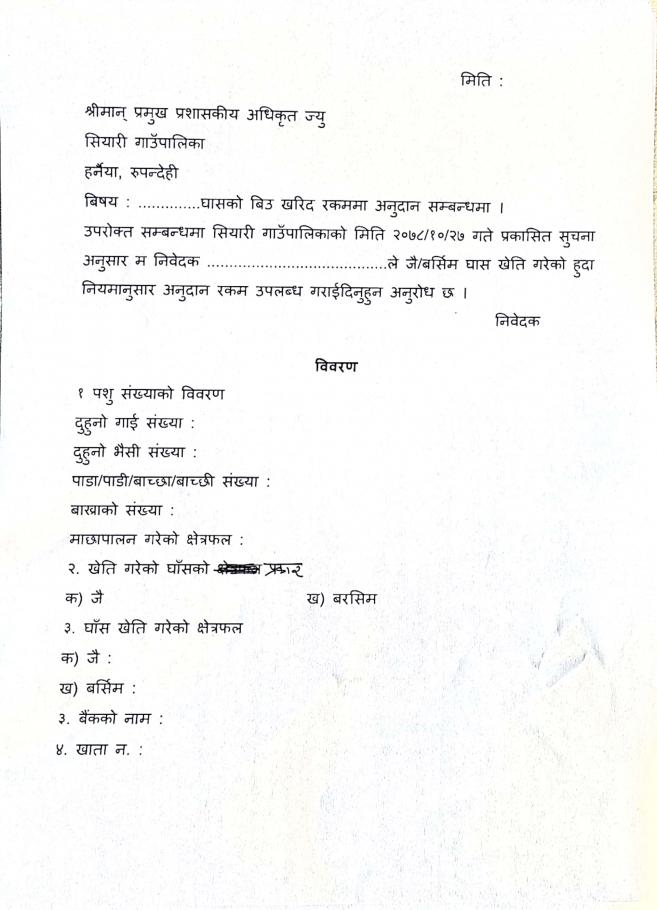 मिति :
श्रीमान् प्रमुख प्रशासकीय अधिकृत ज्यु
सियारी गाउँपालिका
हर्नैया, रुपन्देही
बिषय : ..............घासको बिउ खरिद रकममा अनुदान सम्बन्धमा ।
उपरोक्त सम्बन्धमा सियारी गाउँपालिकाको मिति २०७८/१०/२७ गते प्रकासित सुचना
अनुसार म निवेदक ........................................ले जै/बर्सिम घास खेति गरेको हुदा
नियमानुसार अनुदान रकम उपलब्ध गराईदिनुहुन अनुरोध छ ।
निवेदक
विवरण
१ पशु संख्याको विवरण
दुहुनो गाई संख्या :
दुहुनो भैसी संख्या :
पाडा/पाडी/बाच्छा/बाच्छी संख्या :
बाख्राको संख्या :
माछापालन गरेको क्षेत्रफल :
२. खेति गरेको घाँसको प्रकार
क) जै ख) बरसिम
३. घाँस खेति गरेको क्षेत्रफल
क) जै :
ख) बर्सिम :
३. बैंकको नाम :
४. खाता न. :